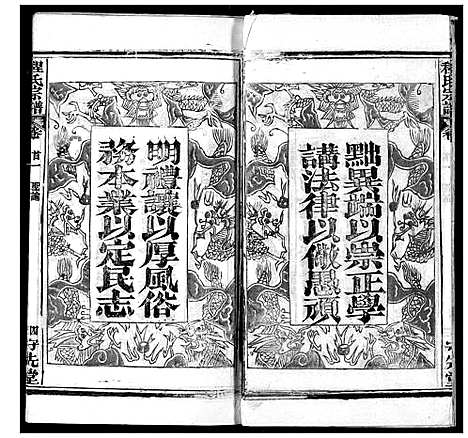 黜異端以崇正學
講法律以儆愚頑
明禮讓以厚風俗
務本業以定民志
程氏宗譜
卷首
聖諭
四
守先堂